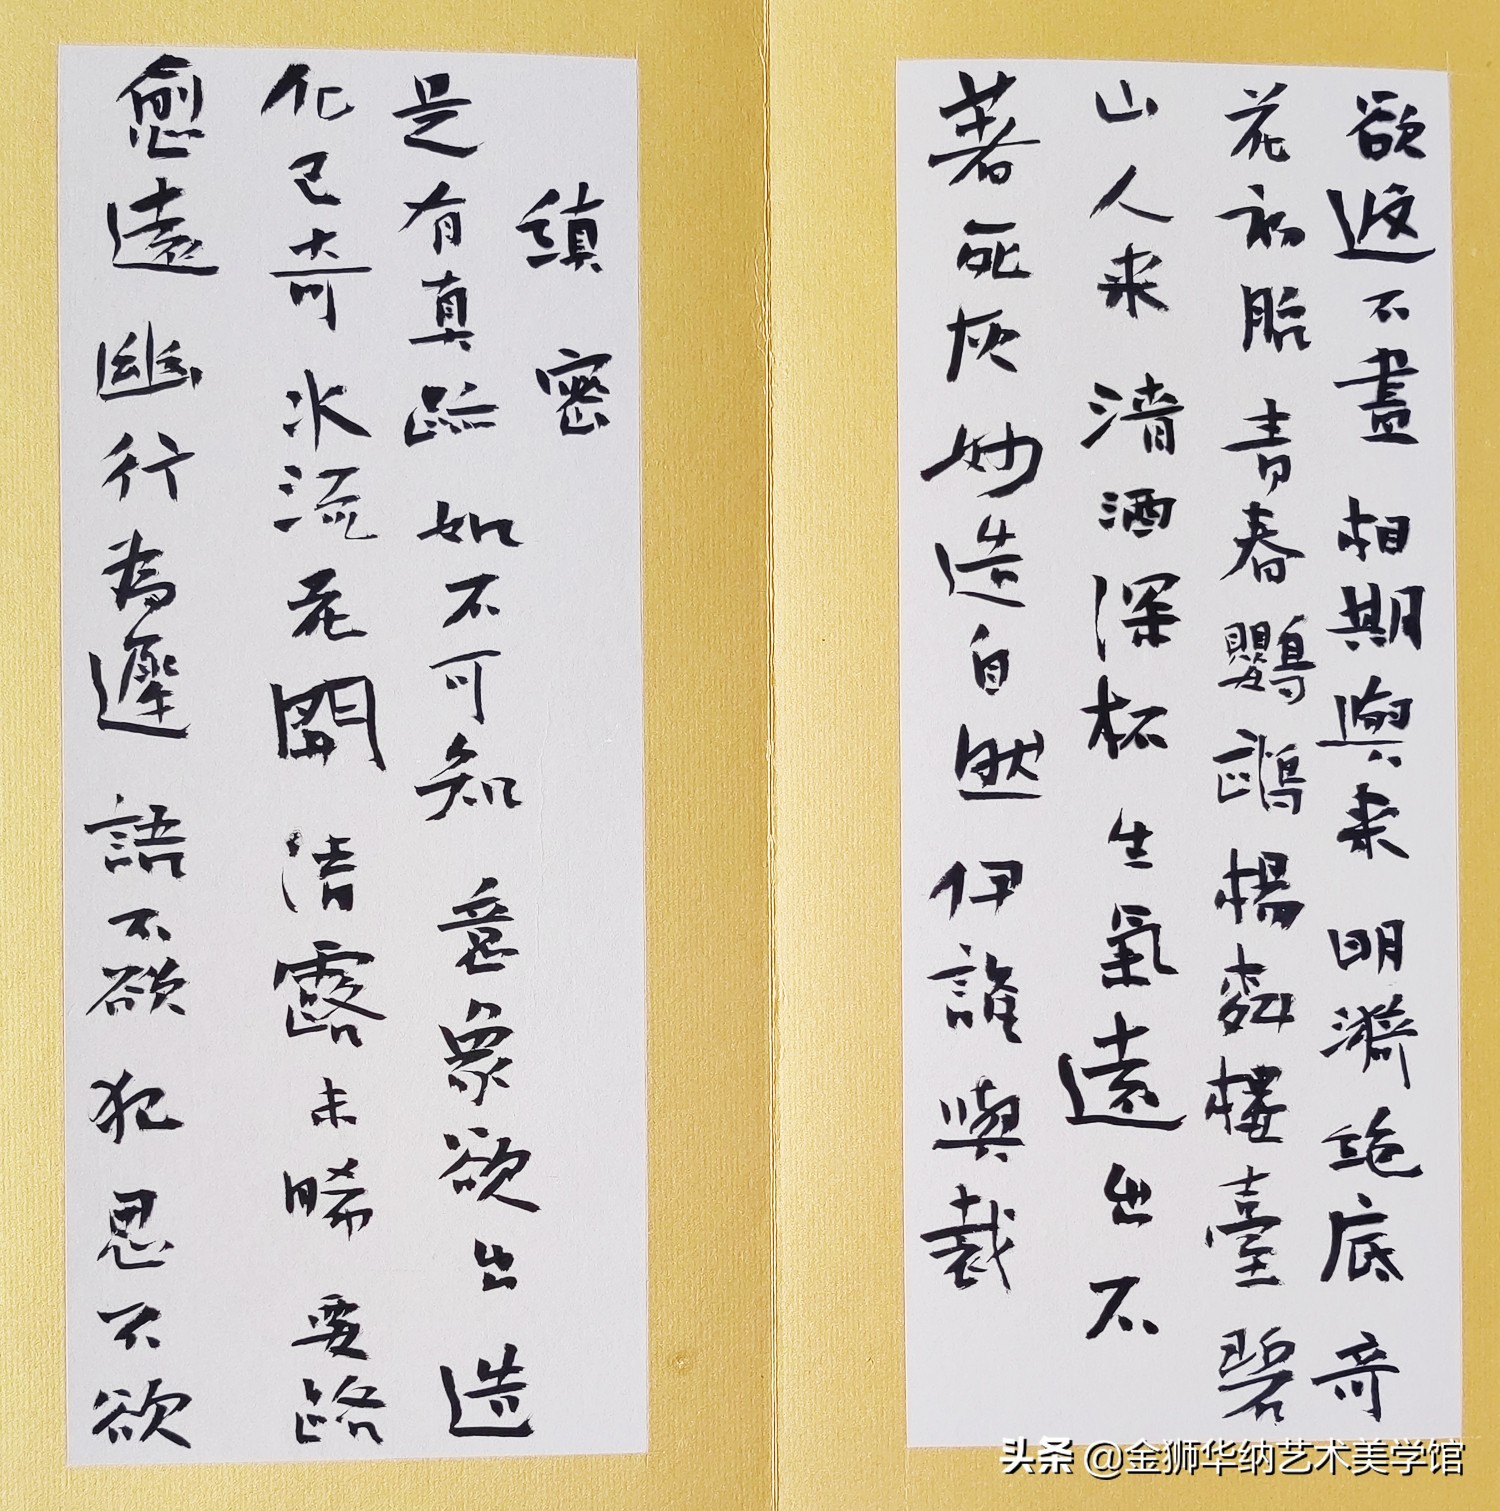 欲返不盡相期與来明漪絶底奇
花初胎青春鸚鵡楊柳樓臺碧
山人来清酒深杯生氣遠出不
著死灰妙造自然伊誰與裁
縝密
是有真跡如不可知意象欲出造
化已奇水流花開清露未晞要路
愈遠幽行為遲語不欲犯思不欲
头条 @金狮华纳艺术美学馆